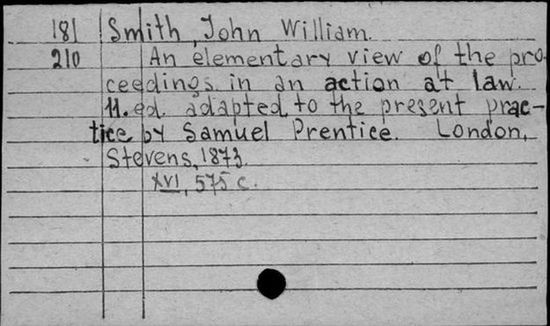 181 Smith, John William.
210 An elementary view of the pro-
ceedings in an action at law.
11. ed. adapted to the present prac-
tice by Samuel Prentice. London,
Stevens, 1873.
XVI, 575 c.